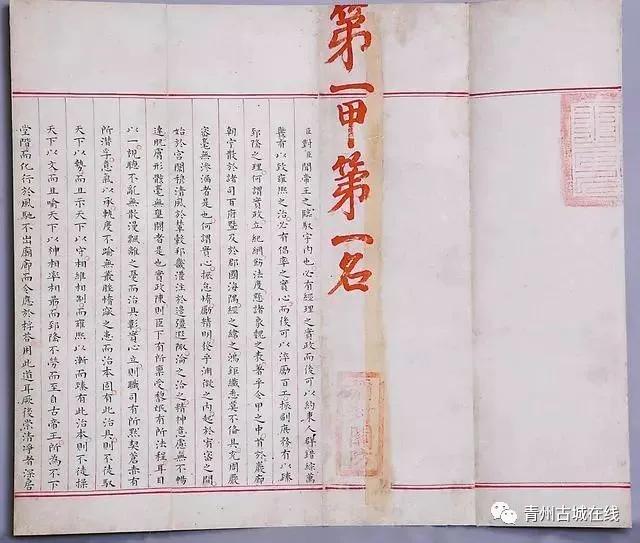 第一甲第一名
臣對臣聞帝王之臨馭宇內也必有經理之實政而後可以約束人群錯綜萬
幾有以致雍熙之治必有倡率之實心而後可以淬勵百工振刷庶務有以臻
郅隆之理何謂實政立紀綱飭法度懸諸象魏之表著乎令甲之中首於巖廊
朝宁散於諸司百府暨及於郡國海隅經之緯之鴻鉅纖悉莫不備具充周嚴
密毫無滲漏者是也何謂實心振怠惰勵精明發乎淵微之內起於宥密之間
始於宮闈積清風於轂邦畿灌注於邊疆遐陬淪之洽之精神意慮無不暢
達肌膚形骸毫無壅閼者是也實政陳則臣下有所稟受黎氓有所法程耳目
以一視聽不亂無散漫飄離之憂而治具彰實心立則職司有所默契蒼赤有
所潛孚意氣以承軌度不踰無叢脞惰窳之患而治本固有此治具則不徒馭
天下以勢而且示天下以守相維相制而雍熙以漸而臻有此治本則不徒操
天下以文而且喻天下以神相率相勗而郅隆不勞而至自古帝王所為不下
堂階而化行於風馳不出廟廊而令應於桴答用此道耳厥後崇清淨者深居
青州古城在线